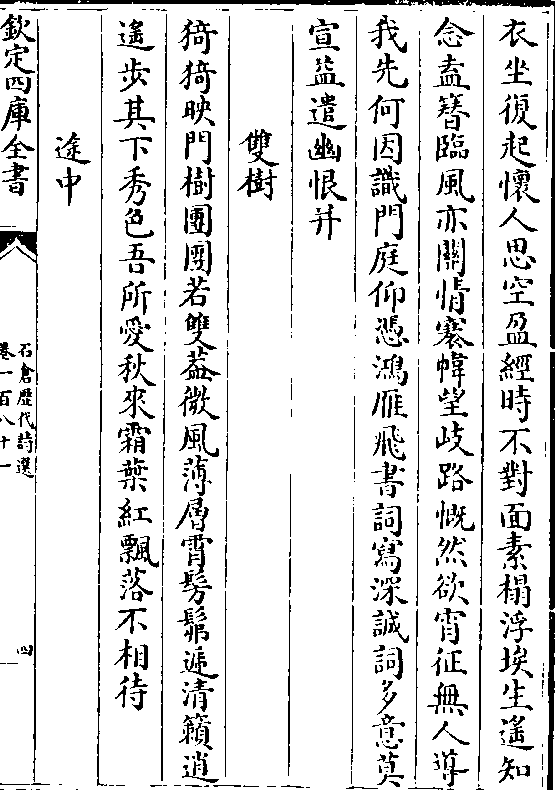 衣坐復起懷人思空盈經時不對面素榻浮埃生遙知
念盍簪臨風亦關情褰幃望歧路慨然欲宵征無人導
我先何因識門庭仰憑鴻雁飛書詞寫深誠詞多意莫
宣益遣幽恨并
雙樹
猗猗映門樹團團若雙葢微風薄層霄髣髴遞清籟逍
遙步其下秀色吾所愛秋來霜葉紅飄落不相待
途中
欽定四庫全書
石倉歷代詩選
卷一百八十一
四